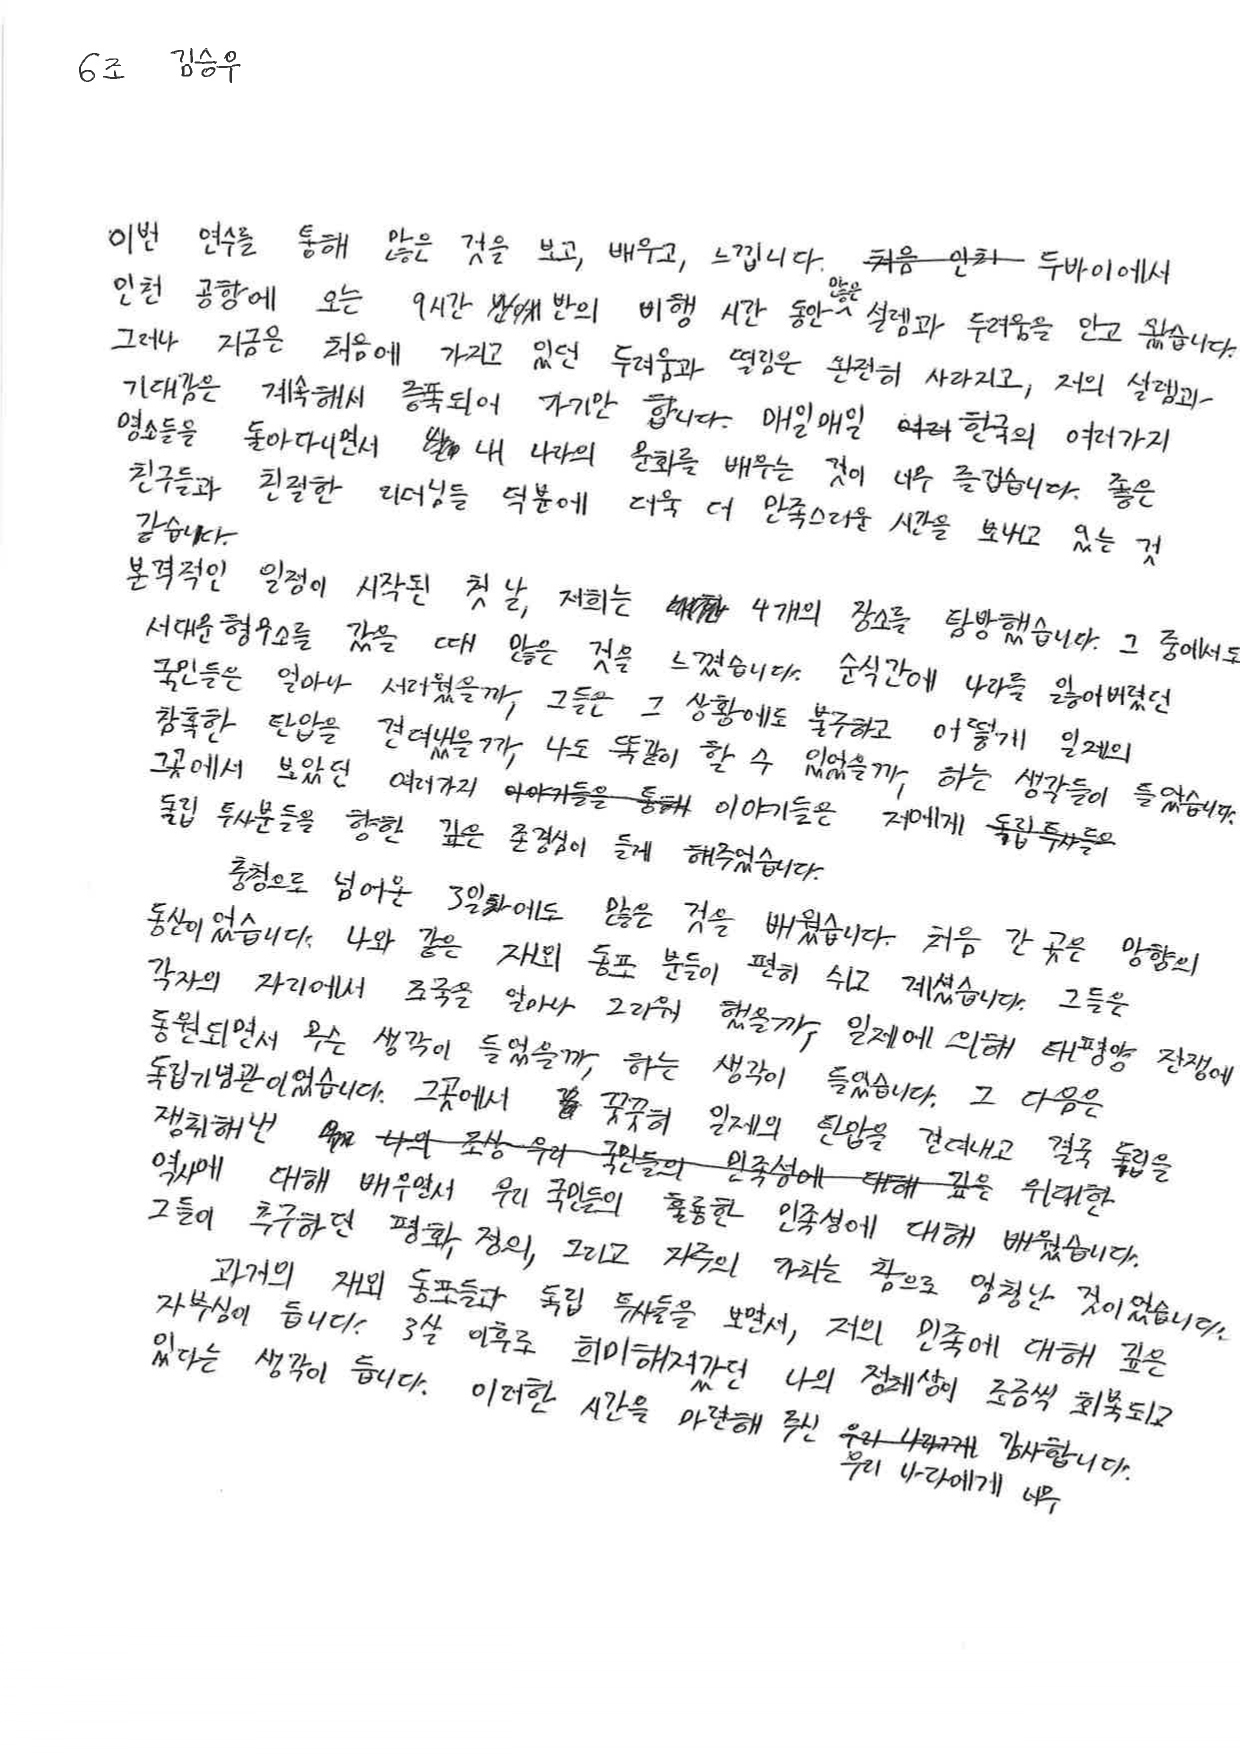 6조 김승우
이번 연수를 통해 많은 것을 보고, 배우고, 느낍니다. 처음 인처 두바이에서
인천 공항에 오는 9시간 반의 비행 시간 동안 많은 설렘과 두려움을 안고 왔습니다.
그러나 지금은 처음에 가지고 있던 두려움과 떨림은 완전히 사라지고, 저의 설렘과
기대감은 계속해서 증폭되어 가기만 합니다. 매일매일 여러 한국의 여러가지
명소들을 돌아다니면서 내 나라의 문화를 배우는 것이 너무 즐겁습니다. 좋은
친구들과 친절한 리더님들 덕분에 더욱 더 만족스러운 시간을 보내고 있는 것
같습니다.
본격적인 일정이 시작된 첫 날, 저희는 4개의 장소를 탐방했습니다. 그 중에서도
서대문형무소를 갔을 때 많은 것을 느꼈습니다. 순식간에 나라를 잃어버렸던
국민들은 얼마나 서러웠을까, 그들은 그 상황에도 불구하고 어떻게 일제의
참혹한 탄압을 견뎌냈을까, 나도 똑같이 할 수 있었을까, 하는 생각들이 들었습니다.
그곳에서 보았던 여러가지 이야기들을 통해 이야기들은 저에게 독립투사들은
독립 투사분들을 향한 깊은 존경심이 들게 해주었습니다.
충청으로 넘어온 3일차에도 많은 것을 배웠습니다. 처음 간 곳은 망향의
동산이었습니다. 나와 같은 재외 동포 분들이 편히 쉬고 계셨습니다. 그들은
각자의 자리에서 조국을 얼마나 그리워 했을까, 일제에 의해 태평양 전쟁에
동원되면서 무슨 생각이 들었을까, 하는 생각이 들었습니다. 그 다음은
독립기념관이었습니다. 그곳에서 꿋꿋히 일제의 탄압을 견뎌내고 결국 독립을
쟁취해낸 나의 조상 우리 국민들의 민족성에 대해 깊은 위대한
역사에 대해 배우면서 우리 국민들의 훌륭한 민족성에 대해 배웠습니다.
그들이 추구하던 평화, 정의, 그리고 자주의 가치는 참으로 엄청난 것이었습니다.
과거의 재외 동포들과 독립 투사들을 보면서, 저의 민족에 대해 깊은
자부심이 듭니다. 3살 이후로 희미해져갔던 나의 정체성이 조금씩 회복되고
있다는 생각이 듭니다. 이러한 시간을 마련해 주신 우리 나라에게 감사합니다.
우리 나라에게 너무